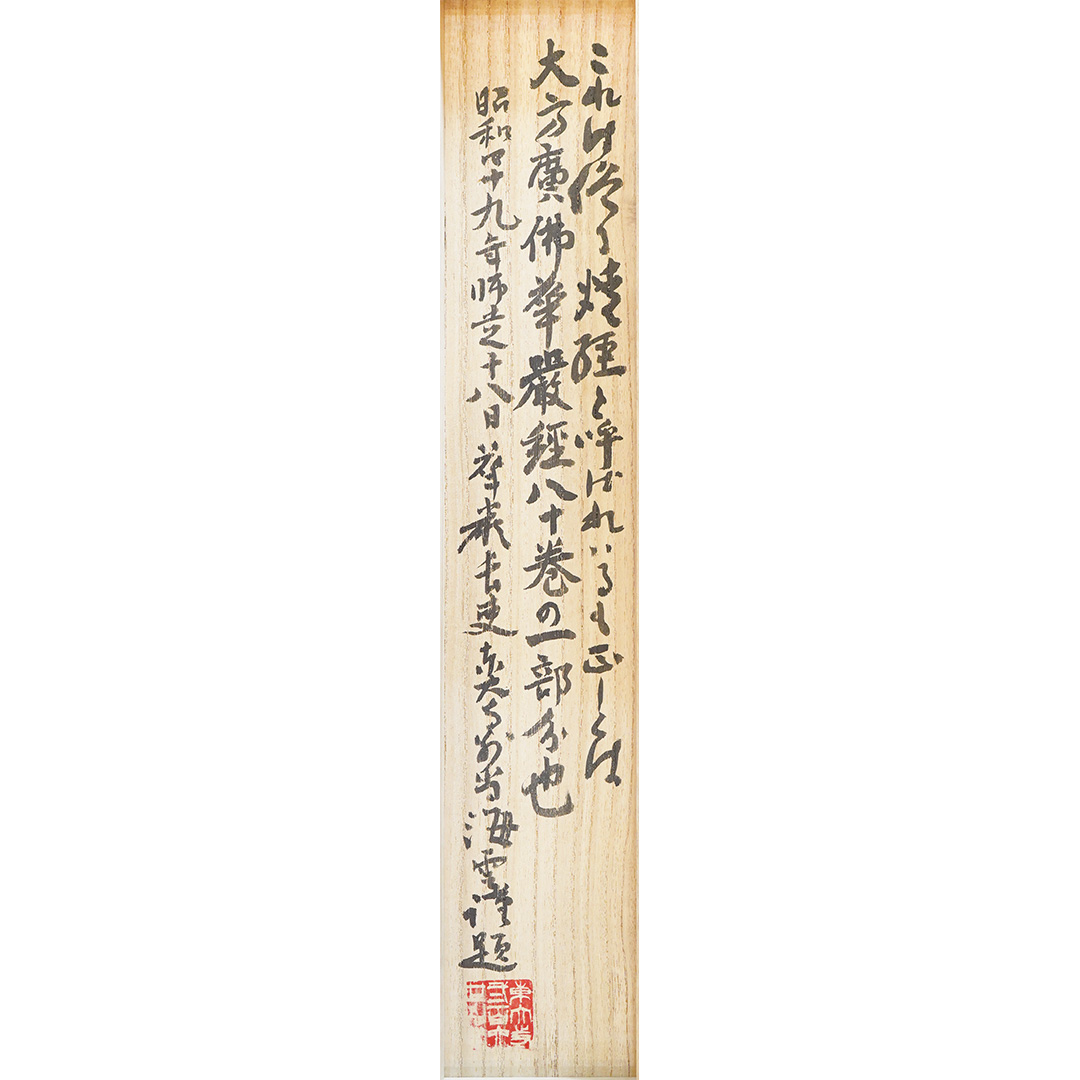 これは俗に焼経と呼ばれいるも正しくは
大方廣佛華嚴經八十巻の一部分也
昭和四十九年師走十八日 華厳長吏東大寺別当海雲謹題